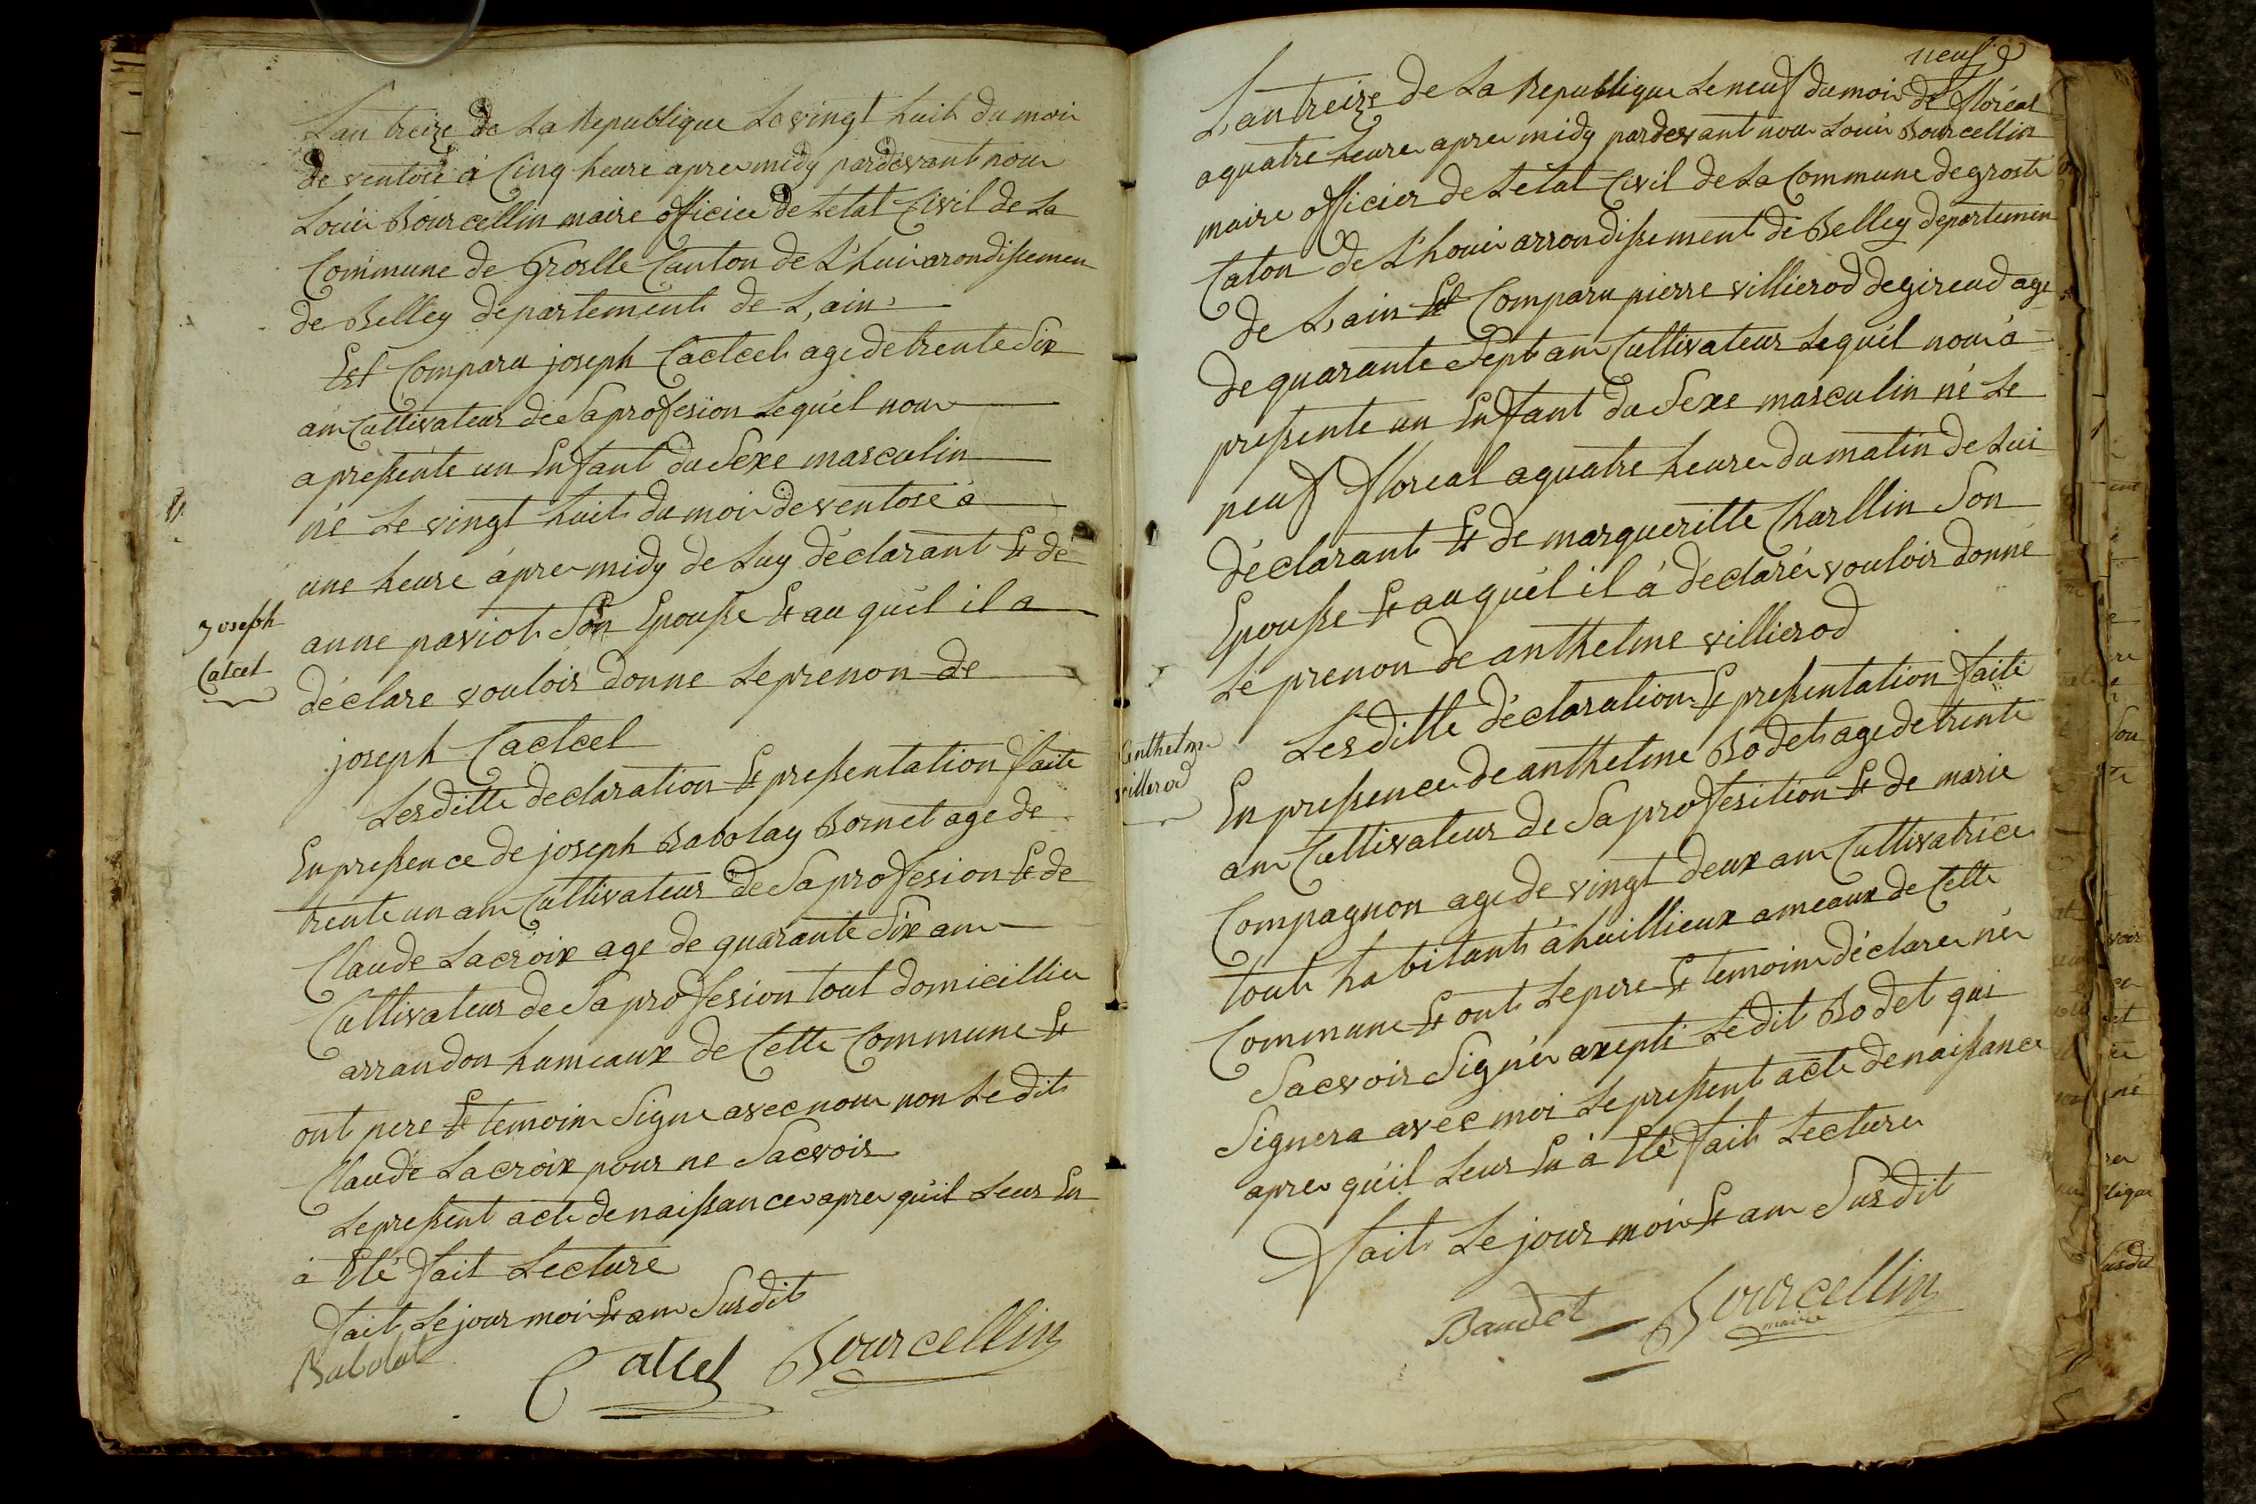 L'an treize de La Republique Le vingt huit du moi
de ventose á Cinq heure apre midy pardevant nou
Loui Bourcellin maire officier De Letat Civil de La
Commune de Groslle Canton de L'hui arondissemen
de Belley departement de L'ain
Est Comparu joseph Catcel age de trente Six
an Cultivateur de Sa profesion Lequ'el nou
a pressente un Enfant du Sexe masculin
né Le vingt huit du moi de ventose á
une heure ápre midy de Luy déclarant Et dé
anne paviot Son Epousse Et au qu'el il a
déclare vouloir donne Le prenon de
joseph Catcel
Joseph
Catcel
Lesditte declaration Et pressentation faite
En pressence de joseph Babolay Bornet age de
trente un an Cultivateur de Sa profesion Et de
Claude Lacroix age de quarante Six an
Cultivateur de Sa profesion tout domicillie
arrandon hameaux de Cette Commune Et
ont pere Et temoin Signe avec nou non Le dit
Claude Lacroix pour ne Sacvoir
Le pressent acte de naissance apre qu'il Leur En
á Eté fait Lecture
fait Le jour moi Et an Susdit
Babolat Catcel Bourcellin
neuf
L'an treize de La Republique Le neuf du moi de floréal
a quatre heure apre midy pardevant nou Loui Bourcellin
maire officier de Letat Civil de La Commune de grosle
Caton de L'houi arrondissement de Belley departemen
de L'ain Est Comparu pierre villierod de gireud age
de quarante Sept an Cultivateur Lequ'el nou á
pressente un Enfant du Sexe masculin né Le
neuf floreal a quatre heure du matin de Lui
déclarant Et de margueritte Charllin Son
Epousse Et au qu'el il á déclaré vouloir donné
Le prenon de anthelme villierod
anthelme
villerod
Lesditte déclaration Et pressentation faite
En pressence de anthelme Bodet age de trente
an Cultivateur de Sa profesition Et de marie
Compagnon age de vingt deux an Cultivatrice
tout habitant á huillieux ameaux de Cette
Commune Et ont Le pere Et temoin déclare né
Sacvoir Signé axepté Le dit Bodet qui
Signera avec moi Le pressent acte de naissance
apre qu'il Leur En á Eté fait Lecture
fait Le jour moi Et an Susdit
Baudet Bourcellin
maire